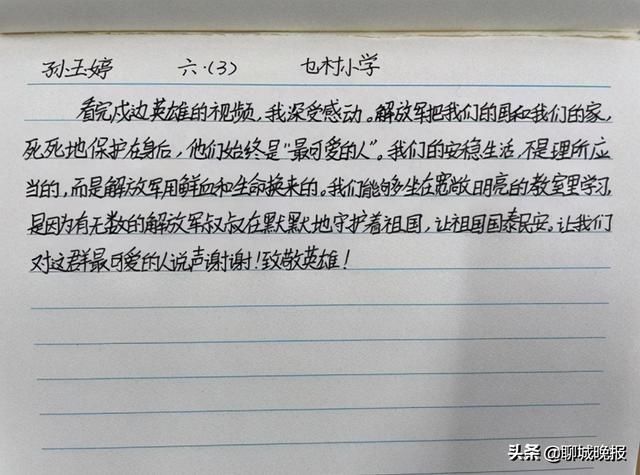 孙玉婷 六.(3) 乜村小学
看完戍边英雄的视频,我深受感动。解放军把我们的国和我们的家,
死死地保护在身后,他们始终是“最可爱的人”。我们的安稳生活,不是理所应
当的,而是解放军用鲜血和生命换来的。我们能够坐在宽敞明亮的教室里学习,
是因为有无数的解放军叔叔在默默地守护着祖国,让祖国国泰民安。让我们
对这群最可爱的人说声谢谢!致敬英雄!
头条 @聊城晚报